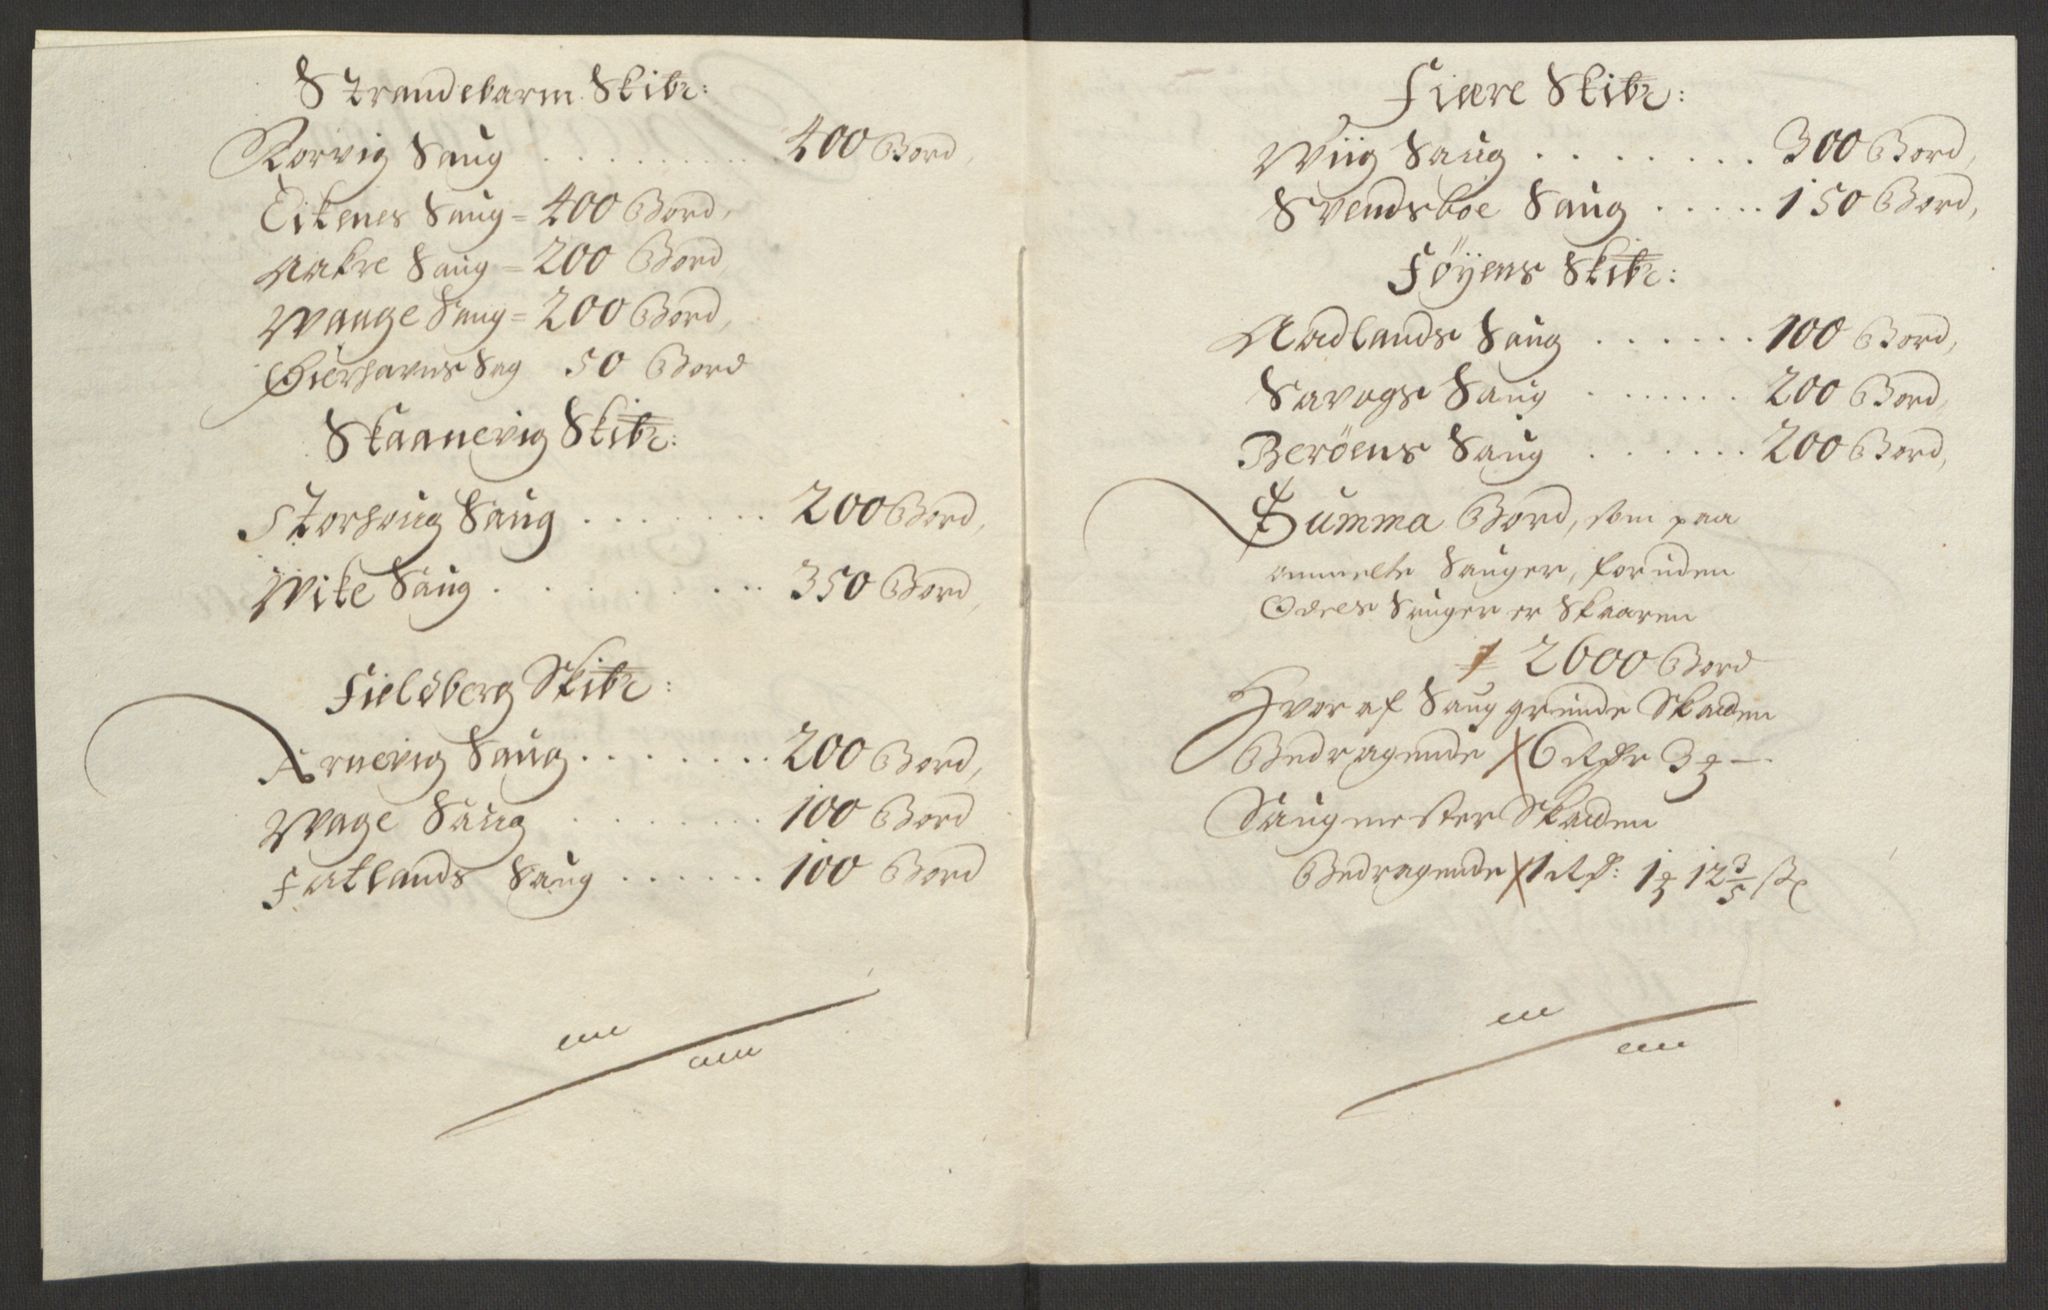 Strandebarm Skibr:
Rorvig Saug . . . . . . . . . . 400 Bord,
Eikenes Saug = 400 Bord,
Aakre Saug = 200 Bord,
Waage Saug = 200 Bord,
Gierhavns Sag 50 Bord
Skaanevig Skibr:
Storhoug Saug . . . . . . . 200 Bord,
Wike Saug . . . . . . . . . . 350 Bord,
Fieldberg Skibr:
Arnevig Saug . . . . . . . . 200 Bord,
Wage Saug . . . . . . . . 100 Bord
Fatlands Saug . . . . . . 100 Bord
Fiære Skibr:
Wiig Saug . . . . . . . . 300 Bord,
Svendsboe Saug . . . . . 150 Bord,
Føyens Skibr:
Aadlands Saug . . . . . . . 100 Bord,
Savogs Saug . . . . . . . 200 Bord,
Berøens Saug . . . . . . . 200 Bord,
Summa Bord, som paa
ommelte Sauger, foruden
Odels Sauger er Skaaren
2600 Bord
Hvor af Saug grunde Skatten
Bedragende 6 Rdr 3
Saugmester Skatten
Bedragende 1 Rdr: 1 12 3/5 s